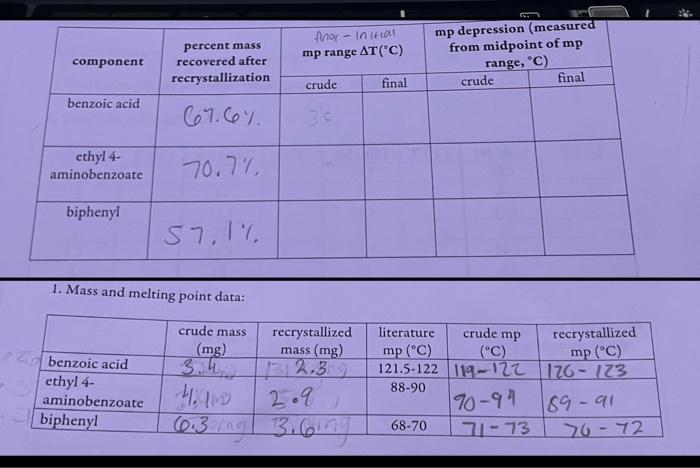 final - Initial
component
percent mass
recovered after
recrystallization
mp range ΔT(°C)
mp depression (measured
from midpoint of mp
range, °C)
crude
final
crude
final
benzoic acid
67.6%
3°C
ethyl 4-
aminobenzoate
70.7%
biphenyl
57.1%
1. Mass and melting point data:
crude mass
(mg)
recrystallized
mass (mg)
literature
mp (°C)
crude mp
(°C)
recrystallized
mp (°C)
benzoic acid
3.4
2.3
121.5-122
119-122
ethyl 4-
aminobenzoate
4.1
2.9
88-90
89-91
biphenyl
6.3
3.6mg
68-70
71-73